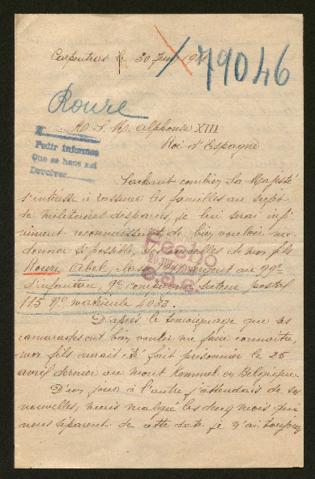 Carpentras le 30 Juin 19
79046
Roure
A S. M. Alphonse XIII
Roi d'Espagne
Pedir informes
Que se hace así
Devolver
Sachant combien Sa Majesté
s'intéresse à rassurer les familles au sujet
de militaires disparus, je lui serai infi
niment reconnaissant de bien vouloir me
donner si possible, des nouvelles de mon fils
Roure Abel, au 99e
d'infanterie, 9e compagnie secteur postal
115 No matricule 1033.
D'après le témoignage que ses
camarades ont bien voulu me faire connaître,
mon fils aurait été fait prisonnier le 25
avril dernier au mont Kemmel en Belgique.
D'un jour à l'autre j'attendais de ses
nouvelles, mais malgré les deux mois qui
nous séparent de cette date je n'ai toujours